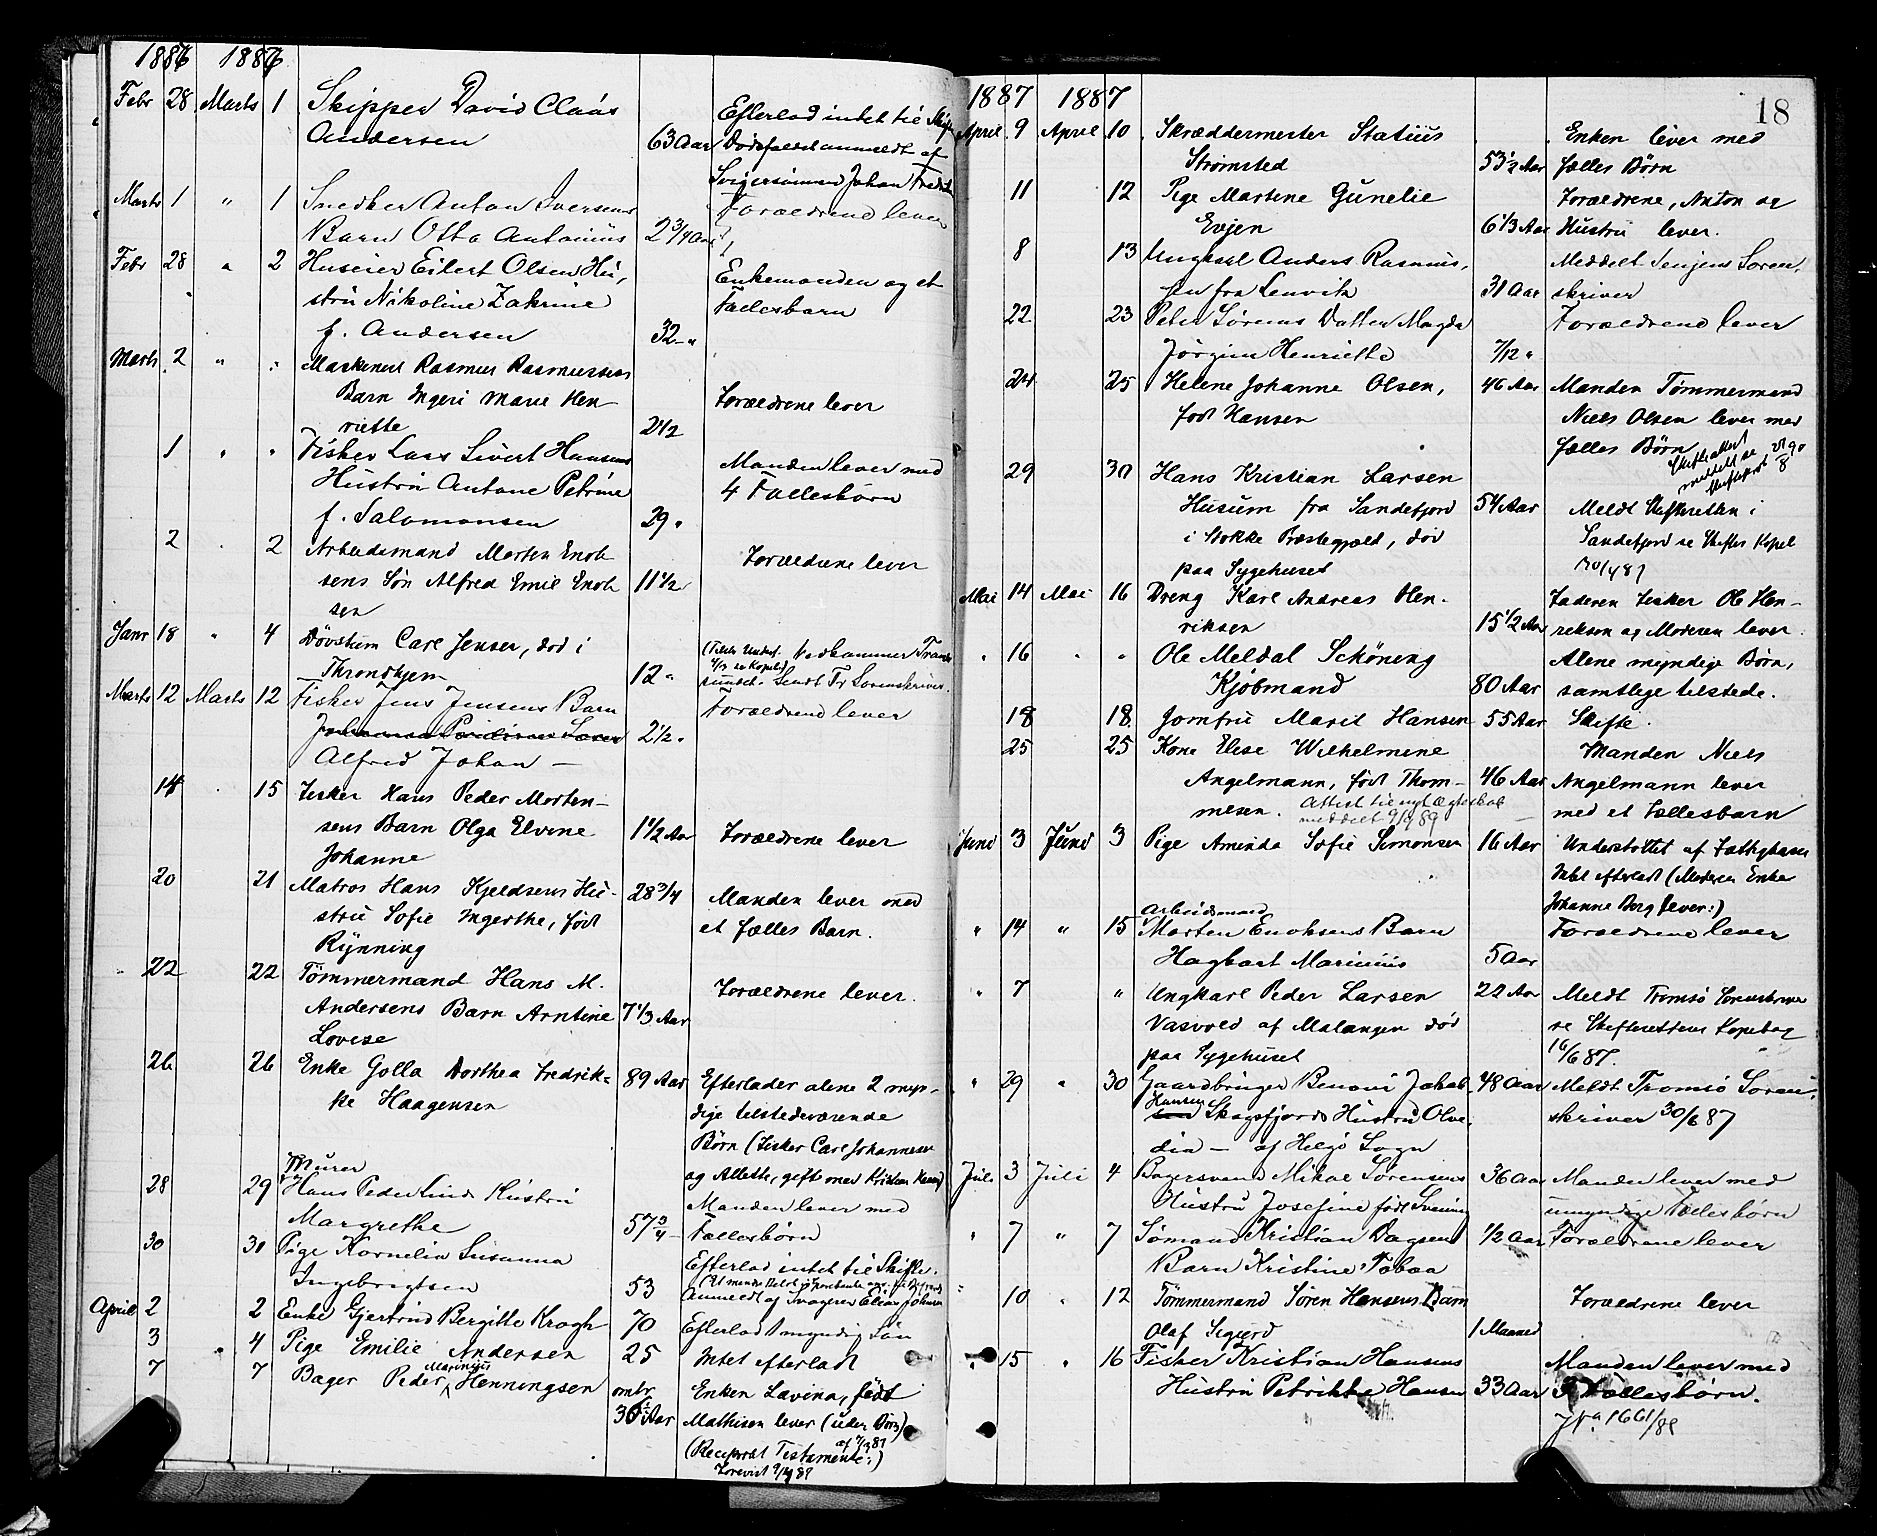 1887 1887
Febr 28 Marts 1 Skipper David Claás Efterlod intet til Skifte
Andersen 63 Aar Dødsfaldet anmeldt af
Svigersønnen Johan Fredrik
Marts 1 " 1 Snedker Anton Iversens Forældrene lever
Barn Otto Antonius 2 3/4 Aar
Febr 28 " 2 Huseier Eilert Olsen Hu- Enkemanden og et
stru Nikoline Zakrine Fællesbarn
f. Andersen 32 - "
Marts 2 " " Maskinist Rasmus Rasmussens
Barn Ingeri Marie Hen- Forældrene lever
riette 2 1/2
1 " " Fisker Lars Sivert Hansens Manden lever med
Hustru Antone Petrine 4 Fællesbørn
f. Salomonsen 29 "
2 2 Arbeidsmand Morten Enok- Forældrene lever
sens Søn Alfred Emil Enok- 11 1/2
sen
Janr 18 " 4 Døvstum Carl Jensen, død i
Throndhjem 12 " Sendt Tr Sorenskriver
Marts 12 Marts 12 Fisker Jens Jensens Barn Forældrene lever
2 1/2 "
Alfred Johan —
14 15 Fisker Hans Peder Morten-
sens Barn Olga Elvine 1 1/2 Aar Forældrene lever
Johanne
20 21 Matros Hans Kjeldsens Hu- 28 3/4 Manden lever med
stru Sofie Ingerthe, født et fælles Barn.
Rynning
22 22 Tømmermand Hans M. Forældrene lever.
Andersens Barn Arntine 7 1/3 Aar
Lovise
26 26 Enke Golla Dorthea Fredrik- 89 Aar Efterlader alene 2 myn-
ke Haagensen dige tilstedeværende
Børn (Fisker Carl Johannesen
Murer og Allette, gift med Kristian Hansen)
28 29 Hans Peder Linds Hustru Manden lever med
Margrethe 57 3/4 - Fællesbørn
30 30 Pige Kornelia Susanna Efterlod intet til Skifte.
Ingebrigtsen 53 Anmeldt af Svogeren Elias Johnsen
April 2 2 Enke Gjertrud Bergitte Krogh 70 Efterlod 1 myndig Søn
3 " 4 Pige Emilie Andersen 25 Intet efterladt
7 7 Bager Peder Marinius Henningsen omtr Enken Lavina, født
36 Aar Mathisen lever (uden Børn)
(Reciprokt Testamente af 7/9 81:)
Forevist 9/4 87
18
1887 1887
April 9 April 10 Skræddermester Statius Enken lever med
Strømsted 53 1/2 Aar fælles Børn
11 12 Pige Martine Gunelie Forældrene, Anton og
Evjen 6 1/3 Aar Hustru lever.
8 13 Ungkarl Anders Rasmus- Meddelt Senjens Soren-
sen fra Lenvik 31 Aar skriver
22 23 Peter Sørens Datter Magda Forældrene lever
Jørgine Henriette 7/12 "
24 25 Helene Johanne Olsen, 46 Aar Manden Tømmermand
født Hansen Niels Olsen lever med
fælles Børn
29 30 Hans Kristian Larsen
Husum fra Sandefjord 54 Aar Meldt Skifteretten i
i Stokke Præstegjæld, død Sandefjord se Skifter Kopeb
paa Sygehuset 30/4 87
Mai 14 Mai 16 Dreng Karl Andreas Hen- Faderen Fisker Ole Hen-
riksen 15 1/2 Aar riksen og Moderen lever.
" 16 " " Ole Meldal Schöning Alene myndige Børn,
Kjøbmand 80 Aar samtlige tilstede.
18 18 Jomfru Marit Hansen 55 Aar Skifte.
25 25 Kone Elise Wilhelmine Manden Niels
Angelmann, født Thom- 46 Aar Angelmann lever
mesen. Attest til nyt Ægteskab meddelt 9/9 89 med et Fællesbarn
Juni 3 Juni 3 Pige Aminda Sofie Simonsen 16 Aar Understøttet af Fattigkassen
Intet efterladt (Moderen Enke
Arbeidsmand Johanne Berg lever:)
" 14 " 15 Morten Enoksens Barn Forældrene lever
Hagbart Marinius 5 Aar
" 7 " Ungkarl Peder Larsen 22 Aar Meldt Tromsø Sorenskriver
Vasvold af Malangen død se Skifterettens Kopebog
paa Sygehuset 16/6 87.
" 29 " 30 Gaardbruger Benoni Jakob 48 Aar Meldt Tromsø Soren-
Hansen Skogsfjords Hustru Olve- skriver 30/6 87
dia — af Helgø Sogn
Juli 3 Juli 4 Bagersvend Mikal Sørensens 36 Aar Manden lever med
Hustru Josefine født Svening umyndige Fællesbørn
" 7 " 7 Sømand Kristian Dagsens 1/2 Aar Forældrene lever
Barn Kristine Tobaa
" 10 " 12 Tømmermand Søren Hansens Barn Forældrene lever
Olaf Sigurd 1 Maaned
" 15 " 16 Fisker Kristian Hansens Manden lever med
Hustru Petrikke Hansen 33 Aar Fællesbørn.
1661/88